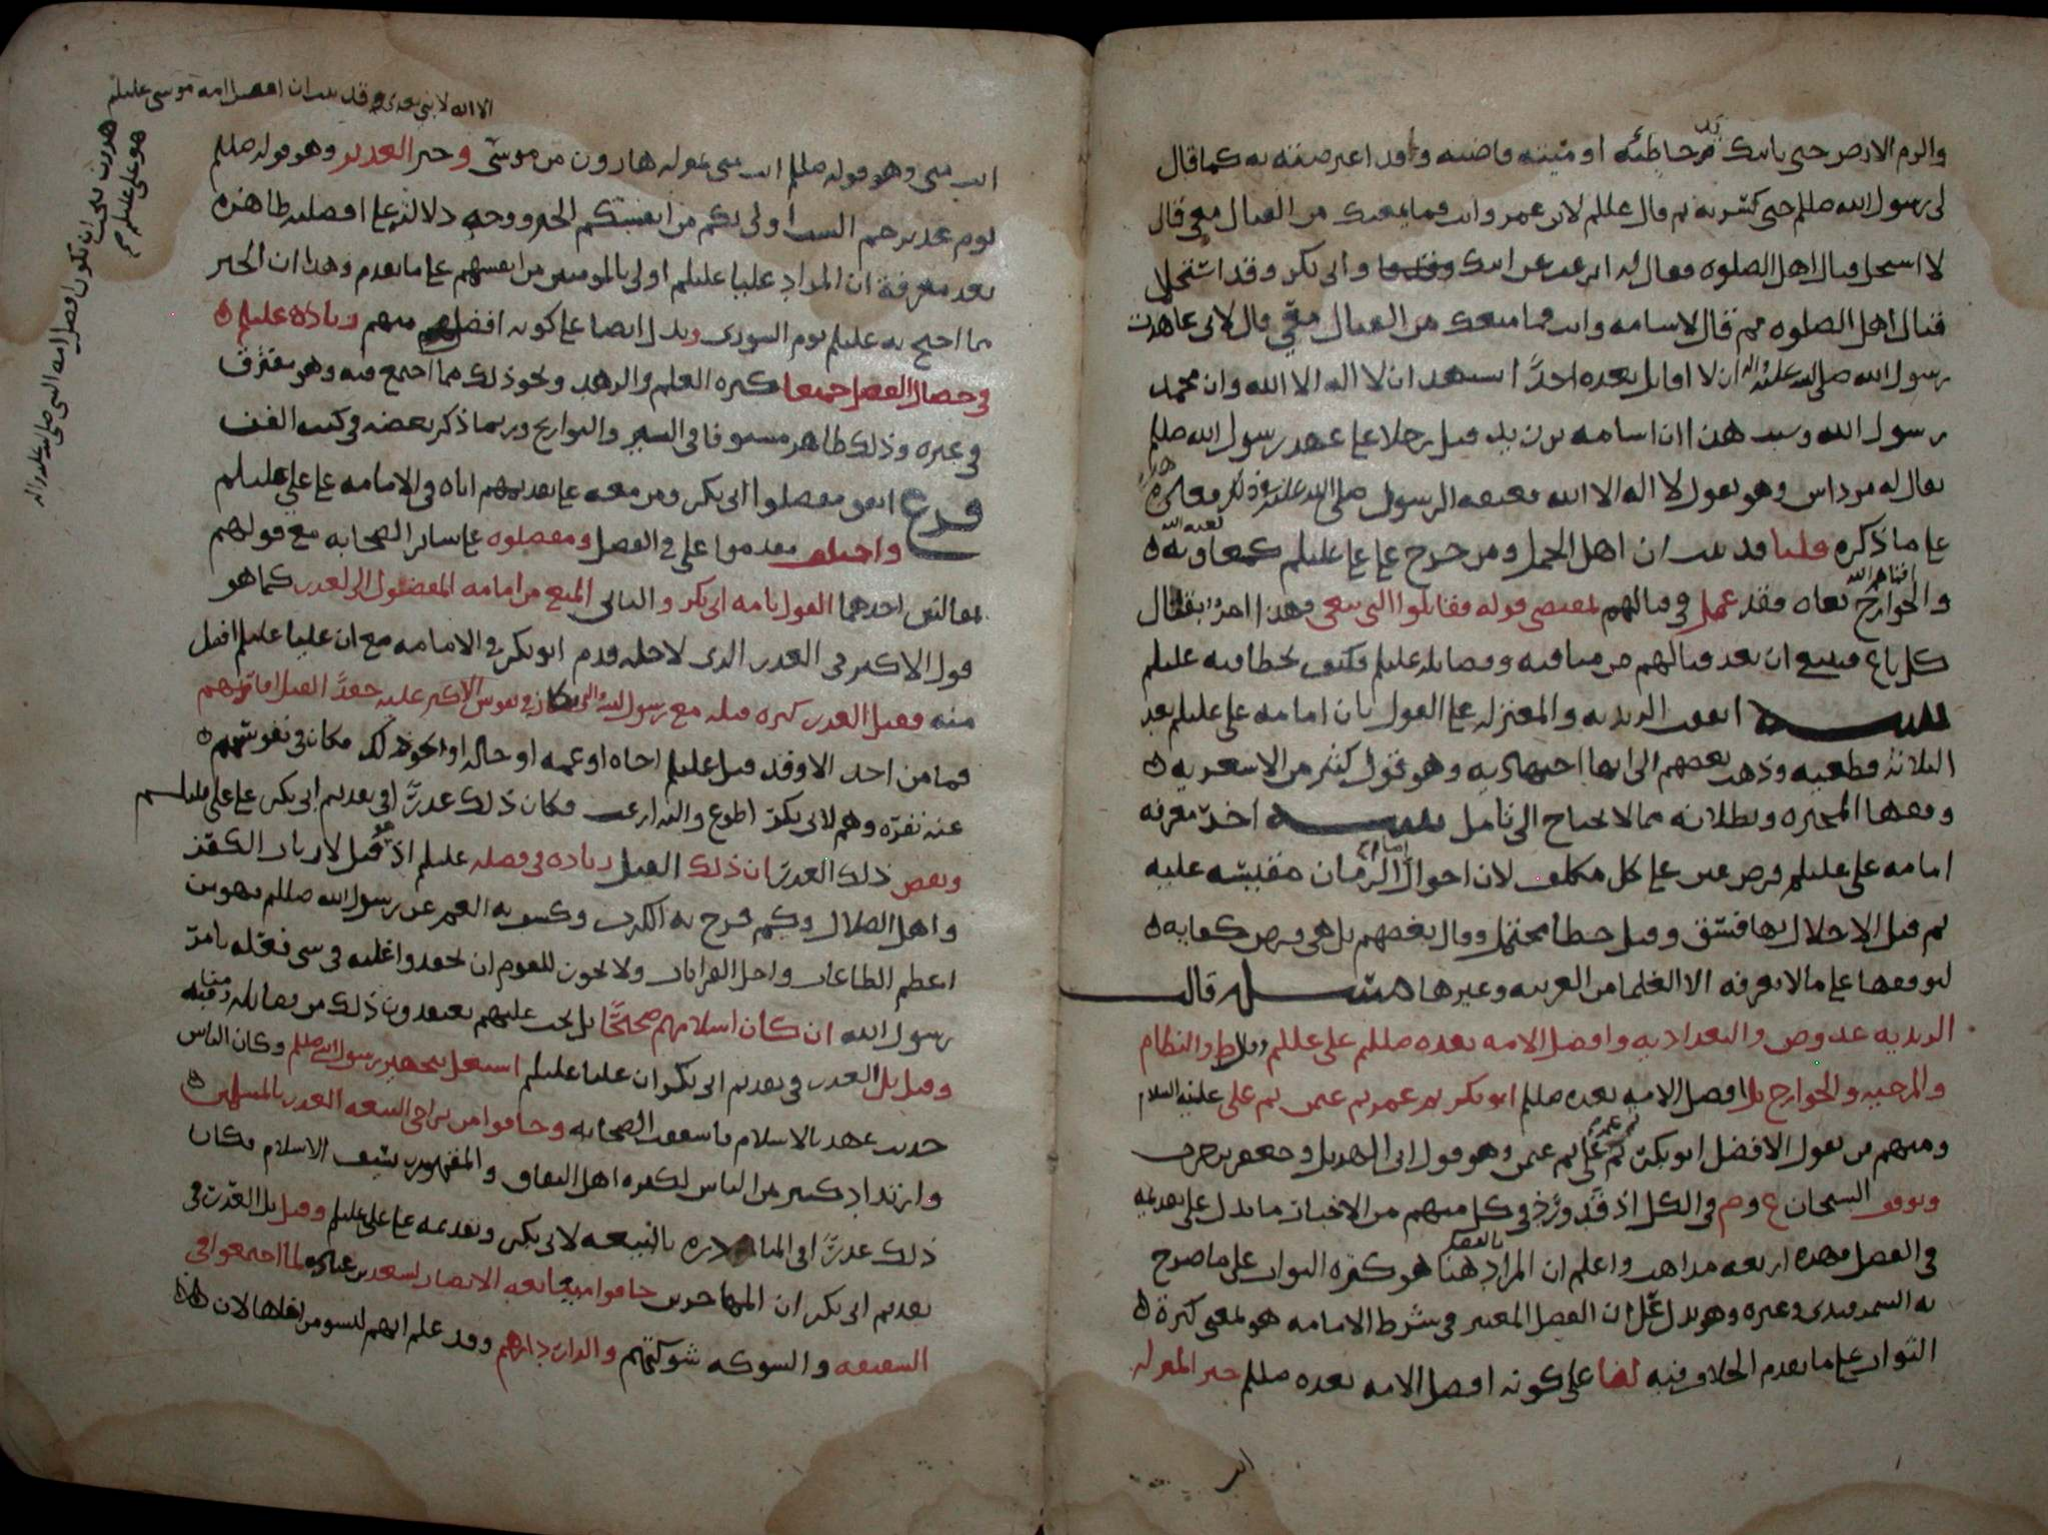 والزم الارض حتى ياتيك يد خاطئه او ميته قاضيه وقد اعترضته به كما قال
لى رسول الله صللم حتى كسرته ثم قال عللم لابن عمر وانت فما يمنعك من القتال معى قال
لا استحل قتال اهل الصلوه فقال له ابن عن ابيك وابى بكر وقد استحلا
قتال اهل الصلوه ثم قال لاسامه وانت فما منعك من القتال معى قال لانى عاهدت
رسول الله صلى الله عليه واله ان لا اقاتل بعده احدا يشهد ان لا اله الا الله وان محمد
رسول الله وسبب هذا ان اسامه بن زيد قتل رجلا على عهد رسول الله صللم
يقال له مرداس وهو يقول لا اله الا الله فعنفه الرسول صلى الله عليه
على ما ذكره قلنا قد ثبت ان اهل الجمل ومن خرج على على عليلم كمعاويه لعنه الله
والخوارج بغاه فقد عمل فى قتالهم بمقتضى قوله فقاتلوا التى تبغى وهذا امر بقتال
كل باغ فينبغى ان يعد قتالهم من مناقبه وفضائله عليلم فكيف يخطا فيه عليلم
تنبيه اتفقت الزيديه والمعتزله على القول بان امامه على عليلم بعد
الثلاثه قطعيه وذهب بعضهم الى انها اجتهاديه وهو قول كثير من الاشعريه
المجبره وبطلانه مما لا يحتاج الى تامل تنبيه اخر معرفه
امامه على عليلم فرض عين على كل مكلف لان احوال الزمان مقيسه عليه
ثم قيل الاخلال بها فسق وقيل خطا محتمل وقال بعضهم بل هى فرض كفايه
لتوقفها على ما لا يعرفه الا العلما من العربيه وغيرها مسئله قالت
الزيديه والبغداديه وافضل الامه بعده صللم على عللم والنظام
والمرجيه والخوارج بل افضل الامه بعده صللم ابو بكر ثم عمر ثم عثمن ثم على عليه السلام
ومنهم من يقول الافضل ابو بكر ثم عمر ثم على ثم عثمن وهو قول ابى الهذيل وجعفر بن حرب
وتوقف الشيخان ع وم فى الكل اذ قد ورد فى كل منهم من الاخبار ما يدل على تقديمه
فى الفضل فهذه اربعه مذاهب واعلم ان المراد بالفضل هنا هو كثره الثواب على ما صرح
به السمرقندى وغيره وهو يدل على ان الفضل المعتبر فى شرط الامامه هو بمعنى كثرة
الثواب على ما تقدم الخلاف فيه لنا على كونه افضل الامه بعده صللم خبر المنزله
انت منى وهو قوله صللم انت منى بمنزله هارون من موسى وخبر الغدير وهو قوله صللم
يوم غدير خم الست اولى بكم من انفسكم الخبر ووجه دلالته على افضليته ظاهره
بعد معرفة ان المراد عليا عليلم اولى بالمومنين من انفسهم على ما تقدم وهذا ان الخبر
مما احتج به عليلم يوم الشورى ويدل ايضا على كونه افضلهم منهم زياده عليلم
فى خصال الفضل جميعا كثره العلم والزهد ونحو ذلك مما اجتمع فيه وهو مفترق
فى غيره وذلك ظاهر مستوفا فى السير والتواريخ وربما ذكر بعضه فى كتب الفن
فرع اتفق مفضلوا ابى بكر ومن معه على تقديمهم اياه فى الامامه على على عليلم
واختلف مقدموا على فى الفضل ومفضلوه على سائر الصحابه مع قولهم
بمقالتين احدهما القول بامامه ابى بكر والثانى المنع من امامه المفضول الا لعذر كما هو
قول الاكثر فى العذر الذى لاجله قدم ابو بكر فى الامامه مع ان عليا عليلم افضل
منه فقيل العذر كثره قتله مع رسول الله فكان فى نفوس الاكثر عليه حقدا لقتل اقاربهم
فما من احد الا وقد قتل عليلم اخاه او عمه او خاله او نحو ذلك فكان فى نفوسهم
عنه نفره وهم لابى بكر اطوع واليه ارغب فكان ذلك عذرا فى تقديم ابى بكر على على عليلم
ونقض ذلك العذر ان ذلك القتل زياده فى فضله عليلم اذ قتل لارباب الكفر
واهل الضلال وكم فرج به الكرب وكشف به الغم عن رسول الله صللم فهو من
اعظم الطاعات واجل القرابات ولا يجوز للقوم ان يحقدوا عليه فى شى فعله بامر
رسول الله ان كان اسلامهم صحيحا بل يجب عليهم يعتقدون ذلك من فضائله ومناقبه
وقيل بل العذر فى تقديم ابى بكر ان عليا عليلم اشتغل بتجهيز رسول الله صللم وكان الناس
حديث عهد بالاسلام فاشفقت الصحابه وخافوا من تراخى البيعه الغدر بالمسلمين
وارتداد كثير من الناس لكثره اهل النفاق والمقهورين بسيف الاسلام فكان
ذلك عذرا فى المبادره بالبيعه لابى بكر وتقدمه على على عليلم وقيل بل العذر فى
تقديم ابى بكر ان المهاجرين خافوا مبايعه الانصار لسعد بن عباده لما اجتمعوا فى
السقيفه والشوكه شوكتهم والدار دارهم وقد علم انهم ليسو من اهلها لان
الا انه لا نبى بعدى وقد ثبت ان افضل امه موسى عليلم
هرون فيجب ان يكون افضل امه النبى صلى الله عليه واله
هو على عليلم